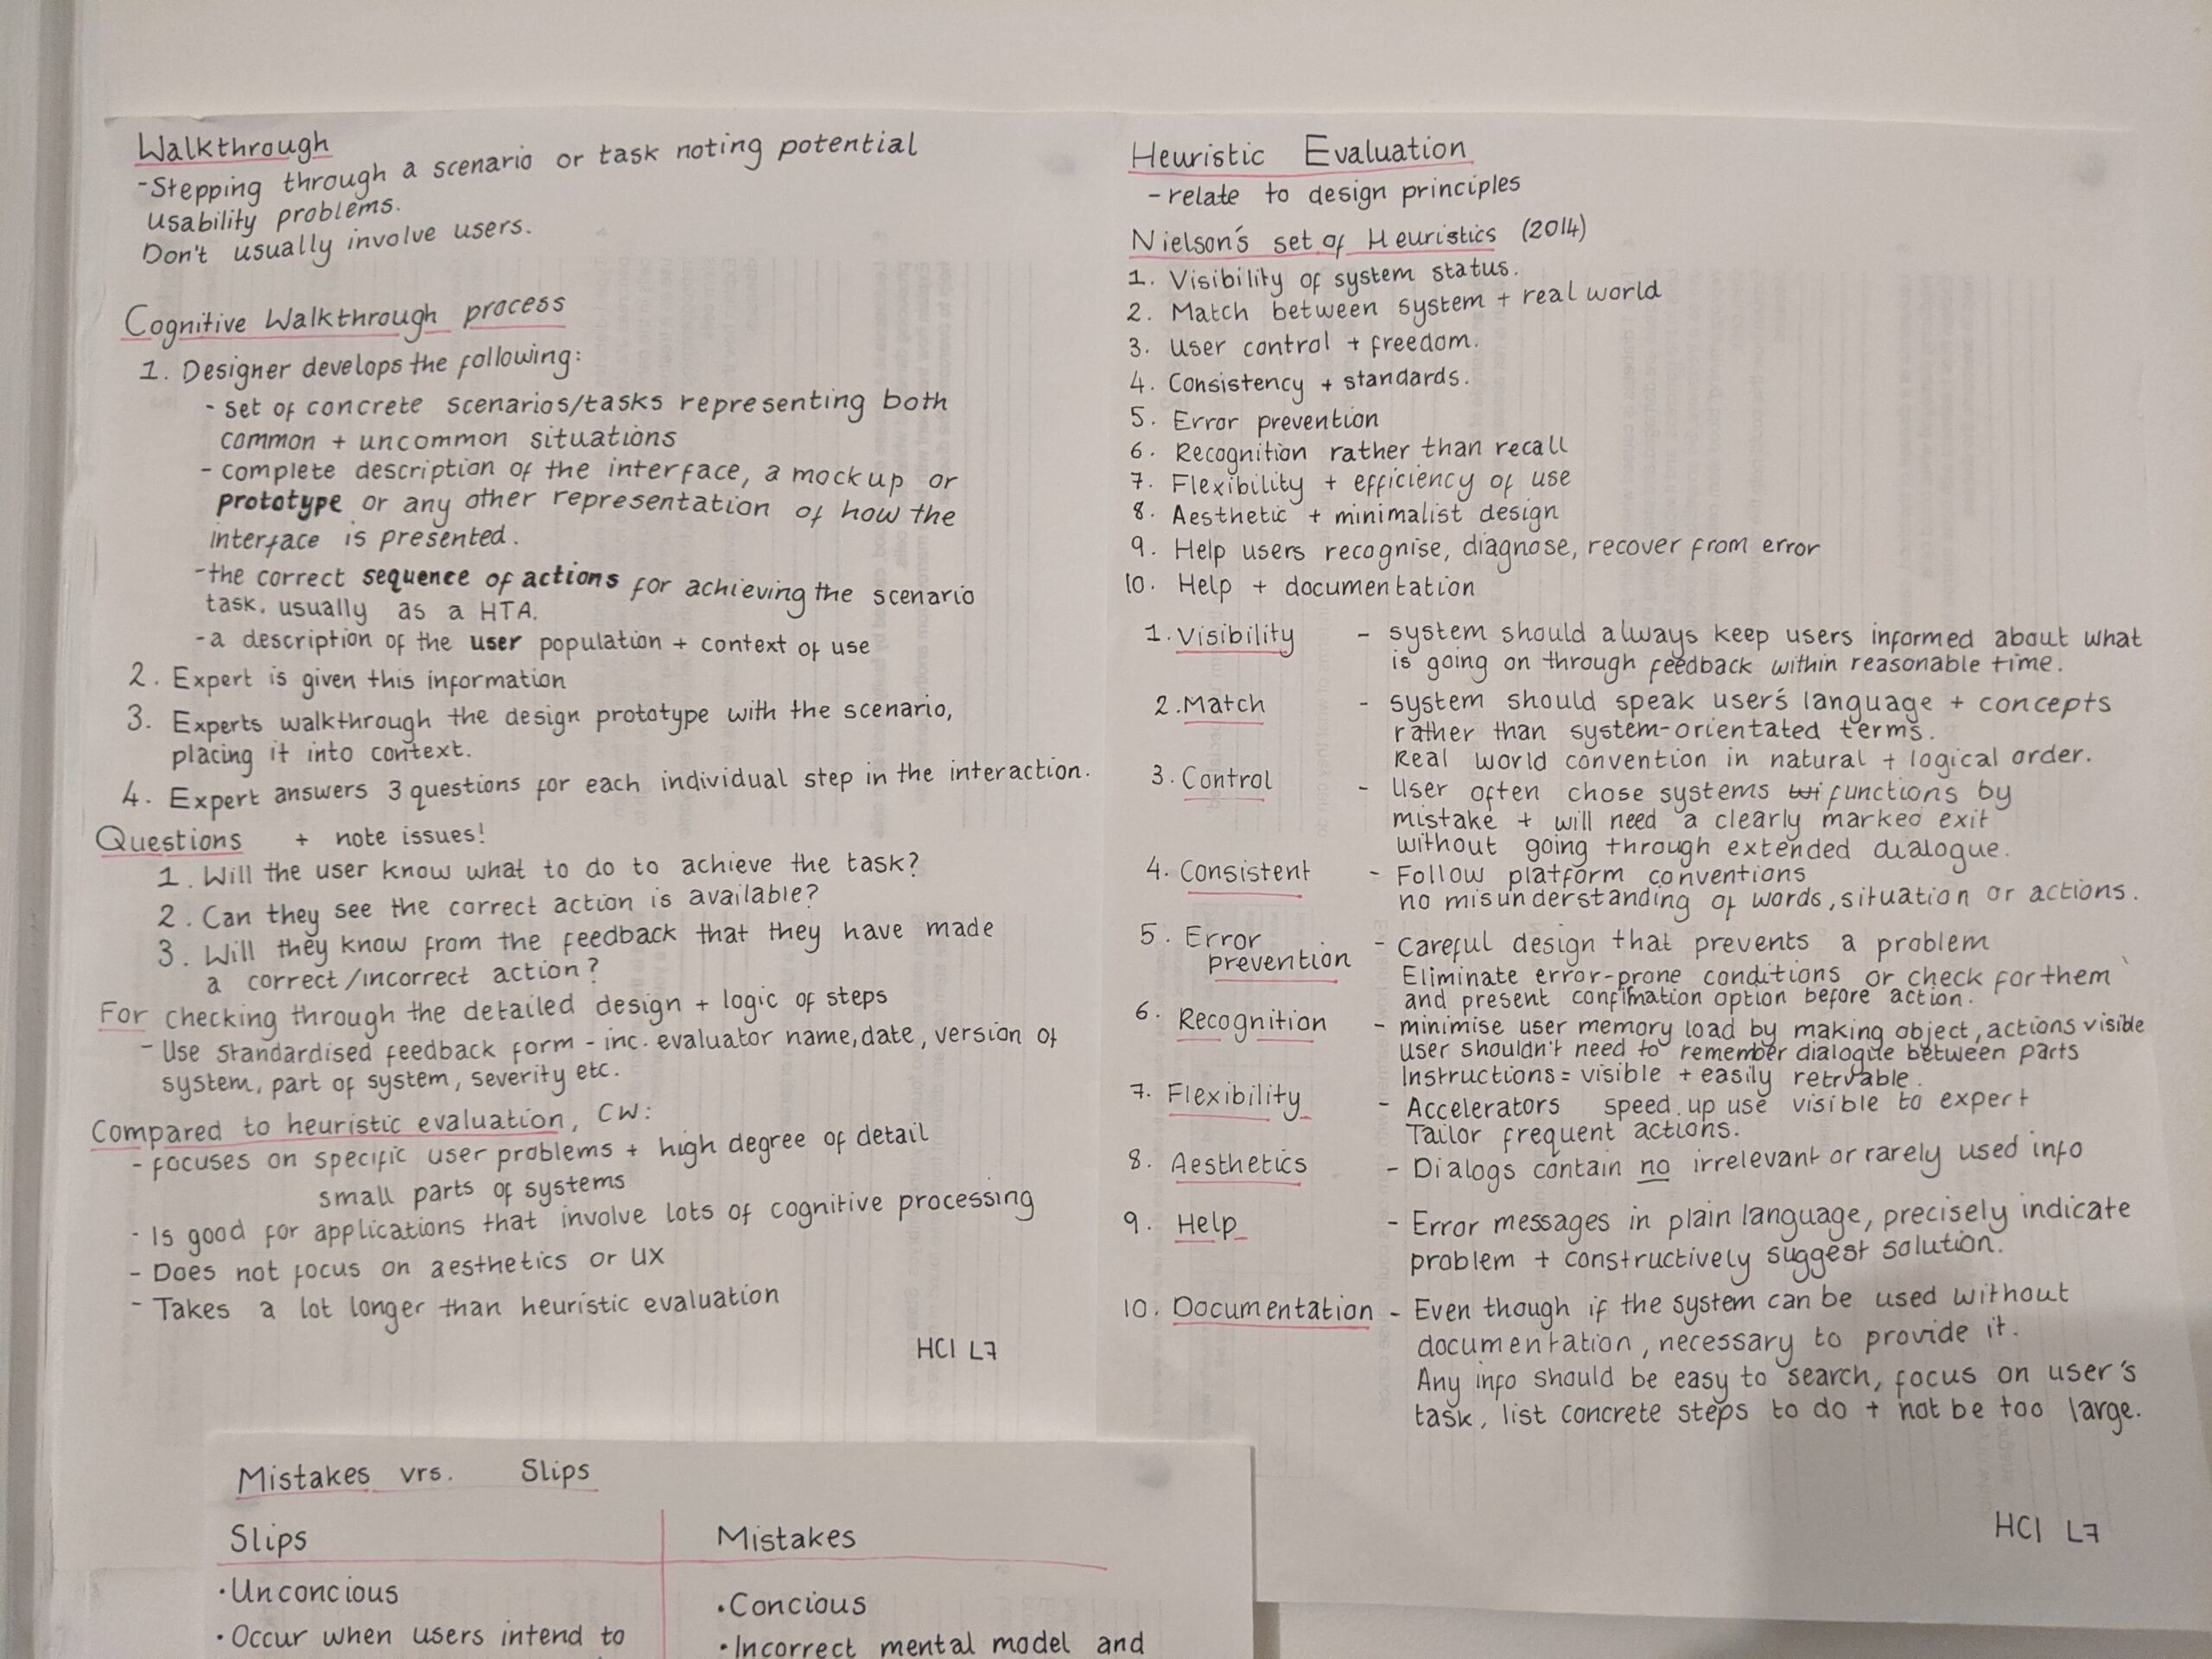 Walkthrough
-Stepping through a scenario or task noting potential
usability problems.
Don't usually involve users.
Cognitive Walkthrough process
1. Designer develops the following:
- set of concrete scenarios/tasks representing both
common + uncommon situations
- complete description of the interface, a mock up or
prototype or any other representation of how the
interface is presented.
-the correct sequence of actions for achieving the scenario
task, usually as a HTA.
-a description of the user population + context of use
2. Expert is given this information
3. Experts walkthrough the design prototype with the scenario,
placing it into context.
4. Expert answers 3 questions for each individual step in the interaction.
Questions + note issues!
1. Will the user know what to do to achieve the task?
2. Can they see the correct action is available?
3. Will they know from the feedback that they have made
a correct/incorrect action?
For checking through the detailed design + logic of steps
- Use standardised feedback form - inc. evaluator name, date, version of
system, part of system, severity etc.
Compared to heuristic evaluation, CW:
- focuses on specific user problems + high degree of detail
small parts of systems
- Is good for applications that involve lots of cognitive processing
- Does not focus on aesthetics or UX
- Takes a lot longer than heuristic evaluation
HCI L7
Heuristic Evaluation
- relate to design principles
Nielson's set of Heuristics (2014)
1. Visibility of system status.
2. Match between system + real world
3. User control + freedom.
4. Consistency + standards.
5. Error prevention
6. Recognition rather than recall
7. Flexibility + efficiency of use
8. Aesthetic + minimalist design
9. Help users recognise, diagnose, recover from error
10. Help + documentation
1. Visibility - system should always keep users informed about what
is going on through feedback within reasonable time.
2. Match - system should speak user's language + concepts
rather than system-orientated terms.
Real world convention in natural + logical order.
3. Control - User often chose systems functions by
mistake + will need a clearly marked exit
without going through extended dialogue.
4. Consistent - Follow platform conventions
no misunderstanding of words, situation or actions.
5. Error - Careful design that prevents a problem
prevention
Eliminate error-prone conditions or check for them
and present confimation option before action.
6. Recognition - minimise user memory load by making object, actions visible
user shouldn't need to remember dialogue between parts
Instructions = visible + easily retrvable.
7. Flexibility - Accelerators speed up use visible to expert
Tailor frequent actions.
8. Aesthetics - Dialogs contain no irrelevant or rarely used info
9. Help - Error messages in plain language, precisely indicate
problem + constructively suggest solution.
10. Documentation - Even though if the system can be used without
documentation, necessary to provide it.
Any info should be easy to search, focus on user's
task, list concrete steps to do + not be too large.
HCI L7
Mistakes vrs. Slips
Slips
Mistakes
• Unconcious
• Occur when users intend to
• Concious
• Incorrect mental model and